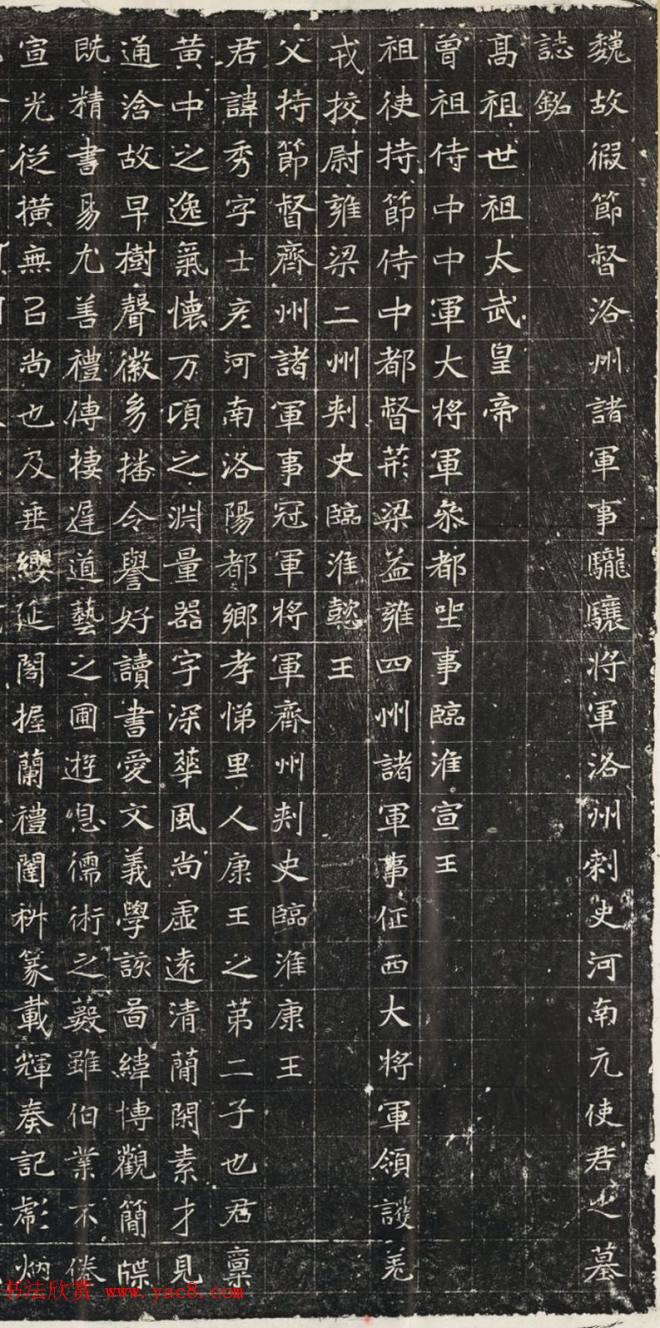 魏故假節督洛州諸軍事驡驤將軍洛州刺史河南元使君之墓
誌銘
高祖世祖太武皇帝
曾祖侍中中軍大将軍叅都坐事臨淮宣王
祖使持節侍中都督荊梁益雍四州諸軍事征西大将軍領護羌
戎挍尉雍梁二州刺史臨淮懿王
父持節督齊州諸軍事冠軍将軍齊州刺史臨淮康王
君諱秀字士彦河南洛陽都鄉孝悌里人康王之第二子也君稟
黃中之逸氣懷万頃之淵量器宇深華風尚虛遠清蘭閑素才見
通洽故早樹聲徽多播令譽好讀書愛文義學該啚緯博觀簡牒
既精書易尤善禮傳棲遲道藝之圃遊息儒術之藪雖伯業不倦
宣光從橫無㠯尚也及垂纓延閣握蘭禮闈斞篆載輝奏記彪炳
书法欣赏 www.yac8.com